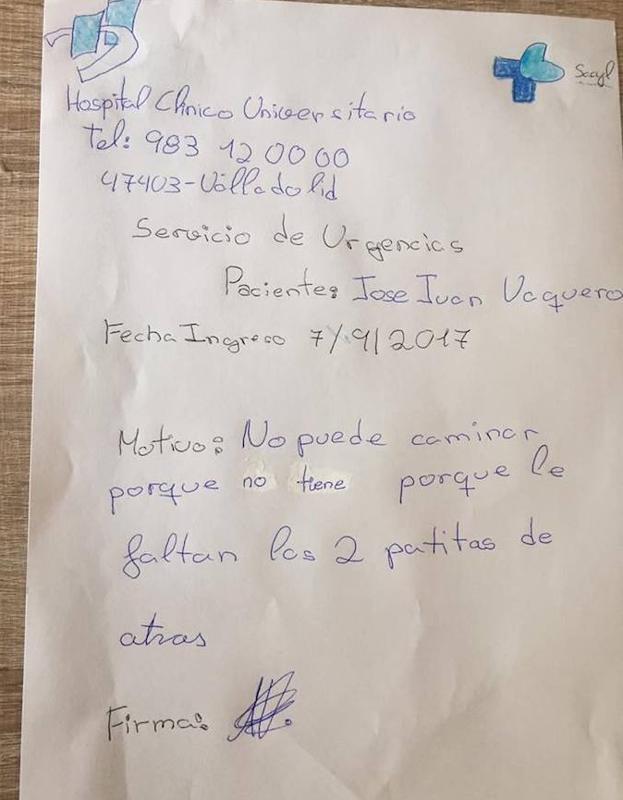 Sacyl
Hospital Clínico Universitario
Tel: 983 12 00 00
47403-Valladolid
Servicio de Urgencias
Paciente: Jose Juan Vaquero
Fecha Ingreso 7/9/2017
Motivo: No puede caminar
porque no tiene porque le
faltan las 2 patitas de
atras
Firma: